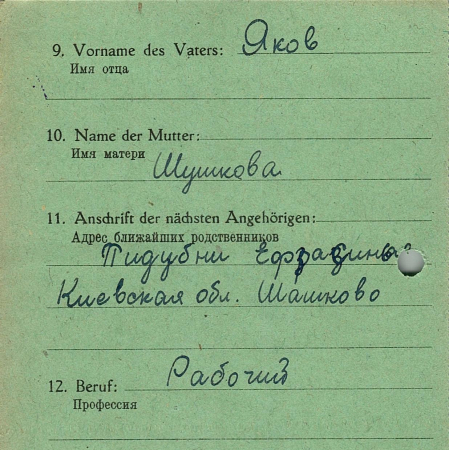 9. Vorname des Vaters: Яков
Имя отца
10. Name der Mutter:
Имя матери Шушкова
11. Anschrift der nächsten Angehörigen:
Адрес ближайших родственников
Пидубни
Киевская обл. Шашково
12. Beruf: Рабочий
Профессия